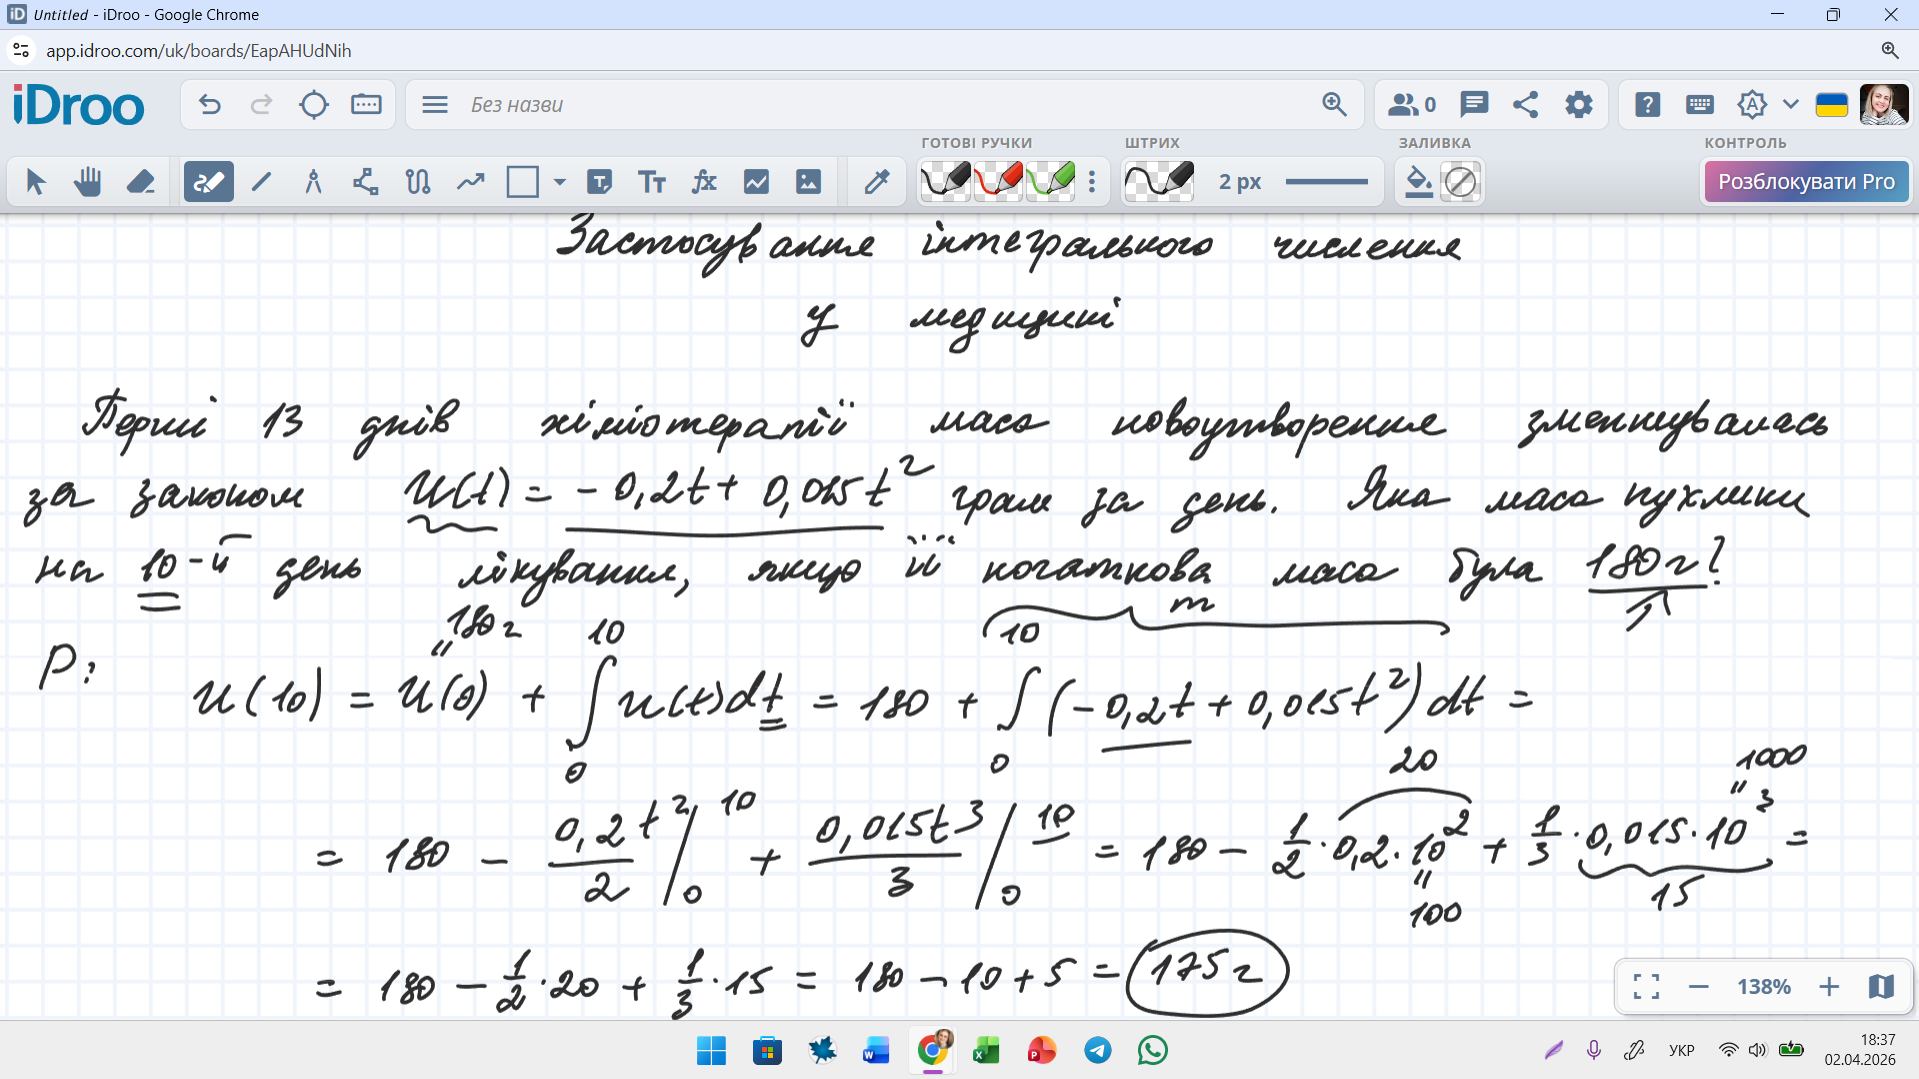 Untitled - iDroo - Google Chrome
app.idroo.com/uk/boards/EapAHUdNih
iDroo
Без назви
0
ГОТОВІ РУЧКИ
ШТРИХ
ЗАЛИВКА
КОНТРОЛЬ
2 px
Розблокувати Pro
Застосування інтегрального числення
у медицині
Перші 13 днів хіміотерапії маса новоутворення зменшувалась
за законом u(t) = - 0,2t + 0,015t² грам за день. Яка маса пухлини
на 10-й день лікування, якщо її початкова маса була 180 г?
m
Р:
180 г
"
U(10) = U(0) + ∫₀¹⁰ u(t)dt = 180 + ∫₀¹⁰ (-0,2t + 0,015t²) dt =
20
1000
"
= 180 - 0,2t²/2 |₀¹⁰ + 0,015t³/3 |₀¹⁰ = 180 - 1/2 · 0,2 · 10² + 1/3 · 0,015 · 10³ =
"
100
15
= 180 - 1/2 · 20 + 1/3 · 15 = 180 - 10 + 5 = 175 г
138%
УКР
18:37
02.04.2026